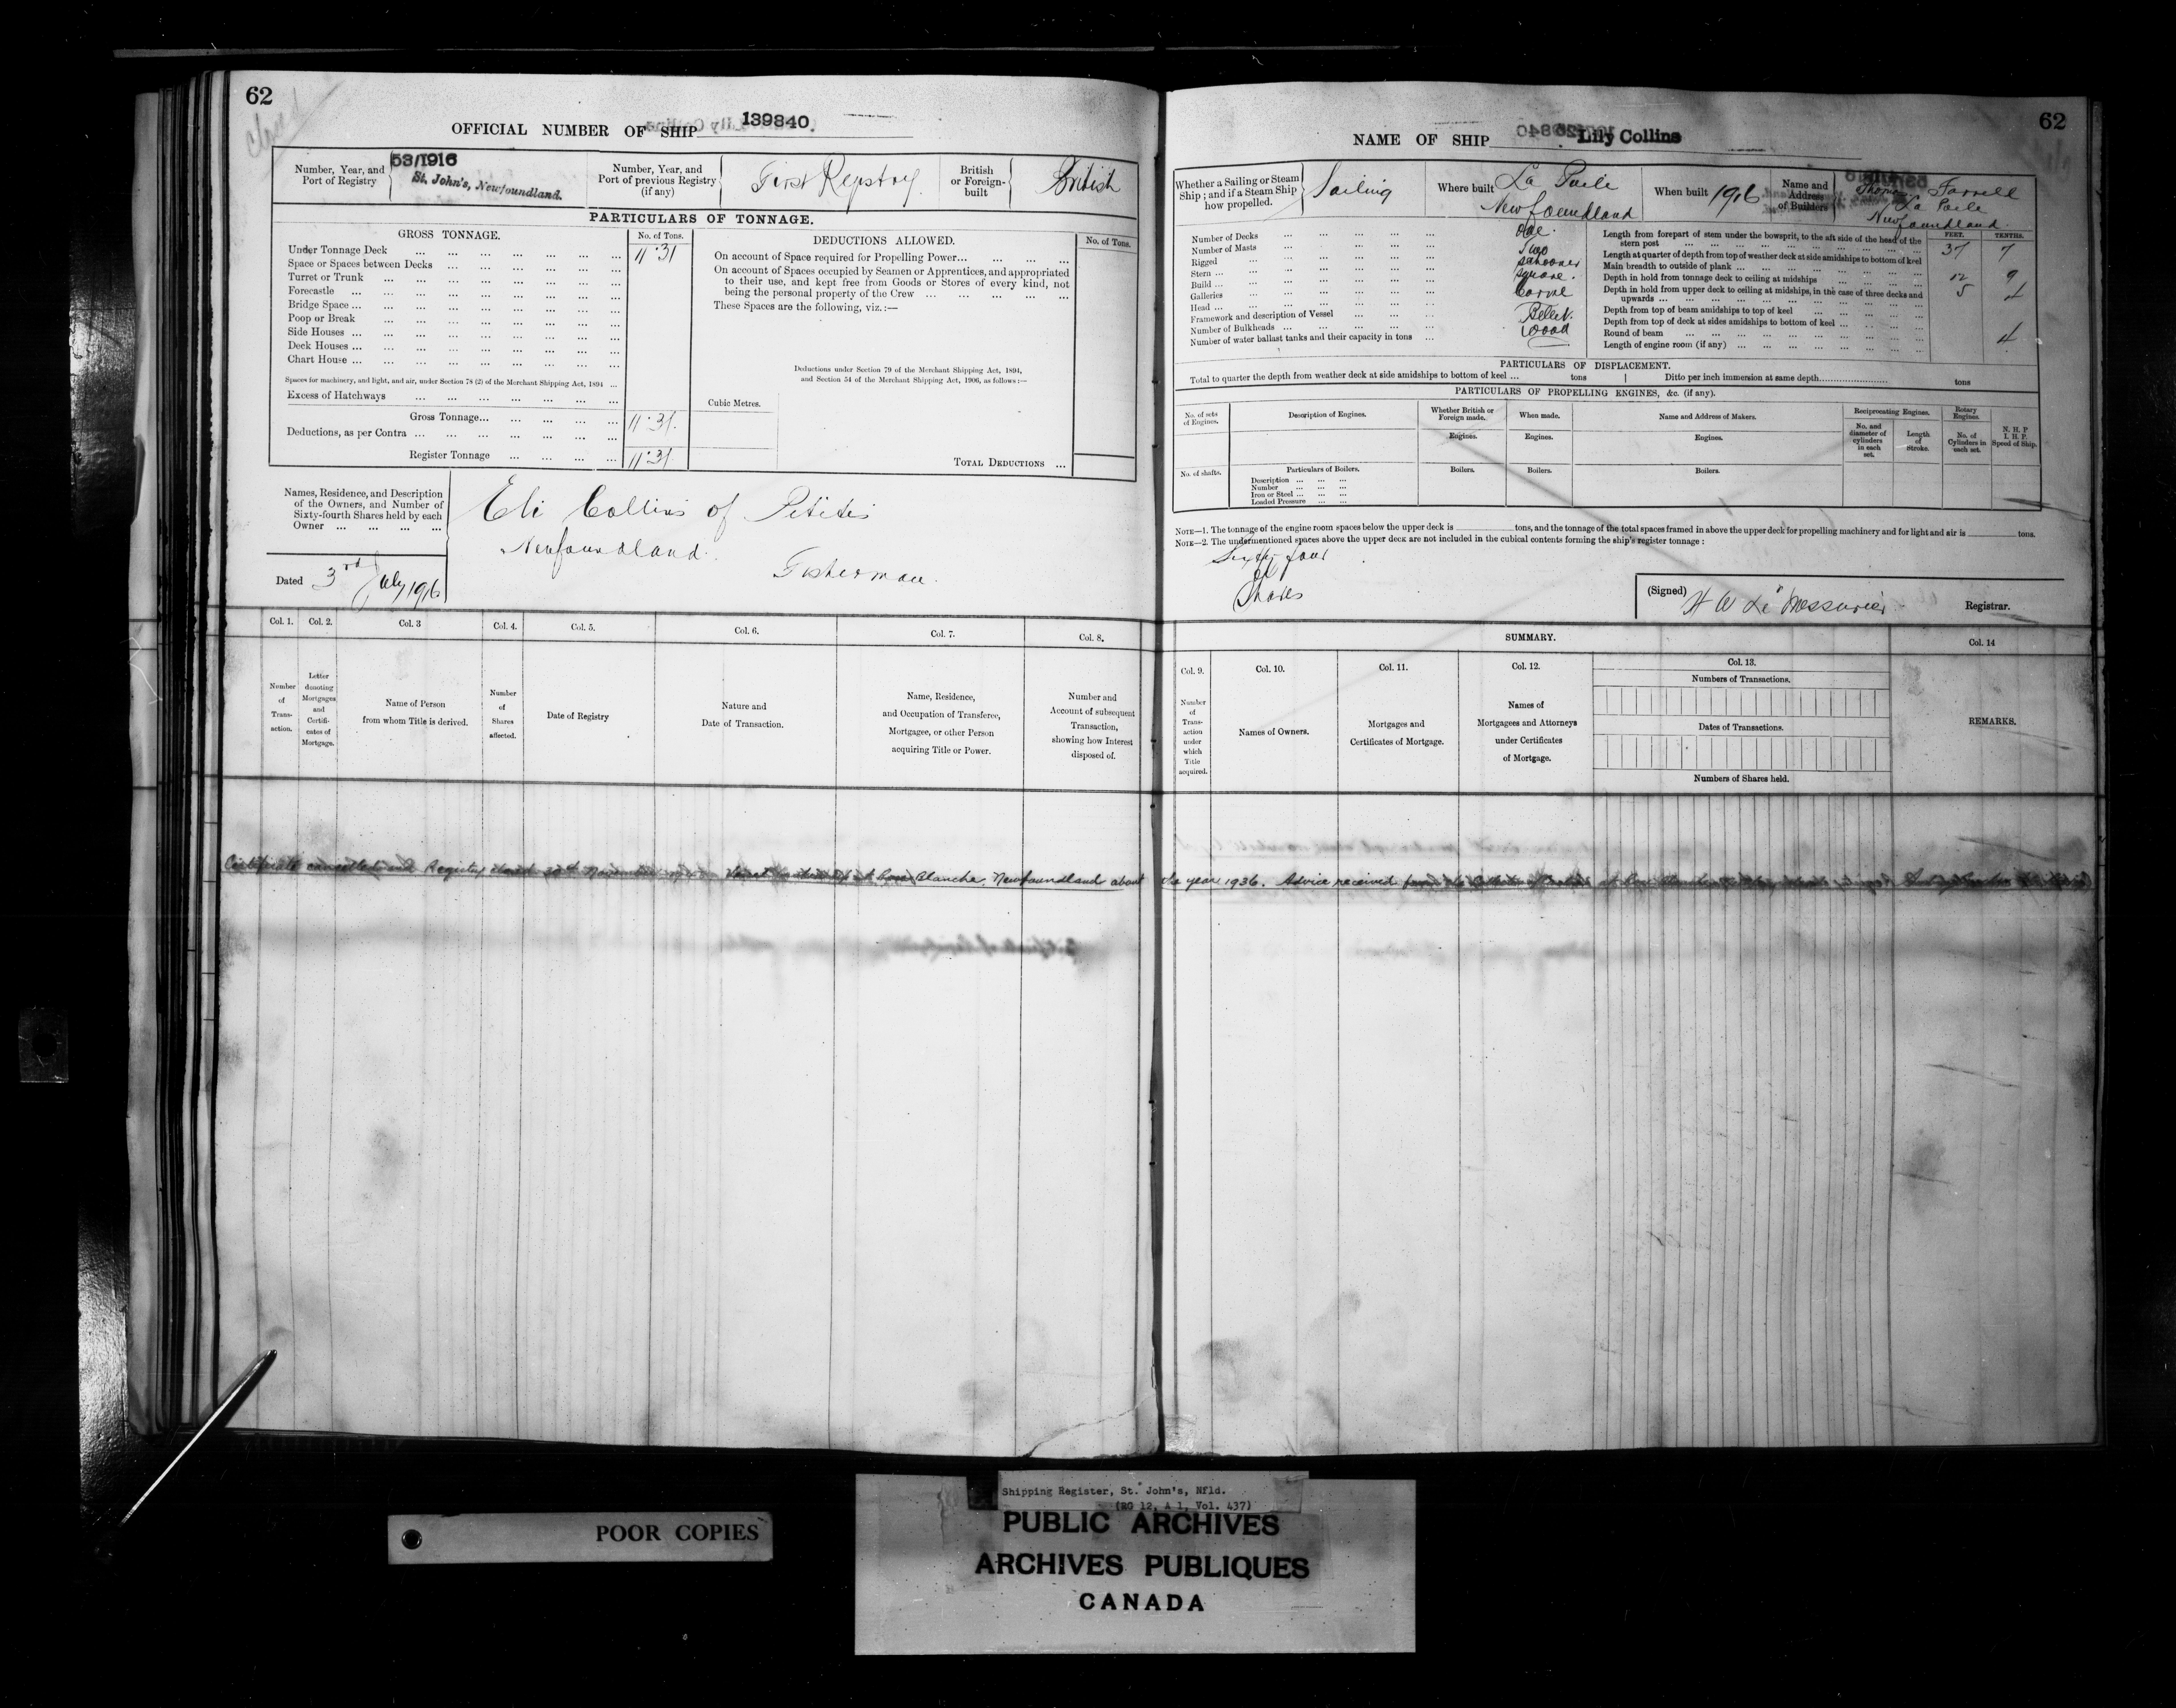 62
closed
OFFICIAL NUMBER OF SHIP 139840.
Number, Year, and Port of Registry
53/1916
St. John's, Newfoundland.
Number, Year, and Port of previous Registry (if any)
First Registry
British or Foreign-built
British
PARTICULARS OF TONNAGE.
GROSS TONNAGE.
No. of Tons.
Under Tonnage Deck ... 11.31
Space or Spaces between Decks
Turret or Trunk
Forecastle
Bridge Space
Poop or Break
Side Houses
Deck Houses
Chart House
Spaces for machinery, and light, and air, under Section 78 (2) of the Merchant Shipping Act, 1894 ...
Excess of Hatchways
Gross Tonnage... 11.31.
Deductions, as per Contra
Register Tonnage 11.31
DEDUCTIONS ALLOWED.
No. of Tons.
On account of Space required for Propelling Power...
On account of Spaces occupied by Seamen or Apprentices, and appropriated
to their use, and kept free from Goods or Stores of every kind, not
being the personal property of the Crew
These Spaces are the following, viz.:—
Deductions under Section 79 of the Merchant Shipping Act, 1894,
and Section 54 of the Merchant Shipping Act, 1906, as follows:—
Cubic Metres.
TOTAL DEDUCTIONS ...
Names, Residence, and Description
of the Owners, and Number of
Sixty-fourth Shares held by each
Owner
Eli Collins of Petites
Newfoundland.
Fisherman.
Dated 3rd July 1916
Col. 1.
Number of Transaction.
Col. 2.
Letter denoting Mortgages and Certificates of Mortgage.
Col. 3
Name of Person from whom Title is derived.
Col. 4.
Number of Shares affected.
Col. 5.
Date of Registry
Col. 6.
Nature and Date of Transaction.
Col. 7.
Name, Residence, and Occupation of Transferee, Mortgagee, or other Person acquiring Title or Power.
Col. 8.
Number and Account of subsequent Transaction, showing how Interest disposed of.
62
NAME OF SHIP Lily Collins
Whether a Sailing or Steam Ship; and if a Steam Ship how propelled.
Sailing
Where built
La Poile
Newfoundland
When built 1916
Name and Address of Builders
Thomas Farrell
La Poile
Newfoundland.
Number of Decks ... One.
Number of Masts ... Two
Rigged ... Schooner
Stern ... Square.
Build ... Carvel
Galleries
Head ... Billet.
Framework and description of Vessel ... Wood
Number of Bulkheads
Number of water ballast tanks and their capacity in tons
FEET. TENTHS.
Length from forepart of stem under the bowsprit, to the aft side of the head of the
stern post ... 37 7
Length at quarter of depth from top of weather deck at side amidships to bottom of keel
Main breadth to outside of plank ... 12 9
Depth in hold from tonnage deck to ceiling at midships 5 4
Depth in hold from upper deck to ceiling at midships, in the case of three decks and
upwards
Depth from top of beam amidships to top of keel
Depth from top of deck at sides amidships to bottom of keel ...
Round of beam 4
Length of engine room (if any)
PARTICULARS OF DISPLACEMENT.
Total to quarter the depth from weather deck at side amidships to bottom of keel ... tons
Ditto per inch immersion at same depth... tons
PARTICULARS OF PROPELLING ENGINES, &c. (if any).
No. of sets of Engines.
Description of Engines.
Whether British or Foreign made.
When made.
Name and Address of Makers.
Reciprocating Engines.
Rotary Engines.
N. H. P
I. H. P.
Speed of Ship.
Engines.
Engines.
Engines.
No. and diameter of cylinders in each set.
Length of Stroke.
No. of Cylinders in each set.
No. of shafts.
Particulars of Boilers.
Boilers.
Boilers.
Boilers.
Description
Number
Iron or Steel
Loaded Pressure
NOTE—1. The tonnage of the engine room spaces below the upper deck is tons, and the tonnage of the total spaces framed in above the upper deck for propelling machinery and for light and air is tons.
NOTE—2. The undermentioned spaces above the upper deck are not included in the cubical contents forming the ship's register tonnage:
Sixty four
Shares
(Signed) H W Le Messurier Registrar.
SUMMARY.
Col. 9.
Number of Transaction under which Title acquired.
Col. 10.
Names of Owners.
Col. 11.
Mortgages and Certificates of Mortgage.
Col. 12.
Names of Mortgagees and Attorneys under Certificates of Mortgage.
Col. 13.
Numbers of Transactions.
Dates of Transactions.
Numbers of Shares held.
Col. 14
REMARKS.
Certificate cancelled and Registry closed November Vessel Blanche, Newfoundland about the year 1936. Advice received
POOR COPIES
Shipping Register, St. John's, Nfld.
(RG 12, A 1, Vol. 437)
PUBLIC ARCHIVES
ARCHIVES PUBLIQUES
CANADA